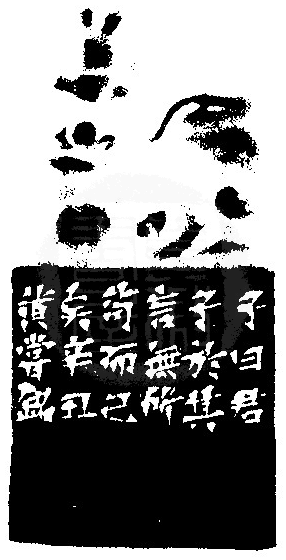 子曰君
子於其
言無所
苟而已
矣辛丑
黃嘗